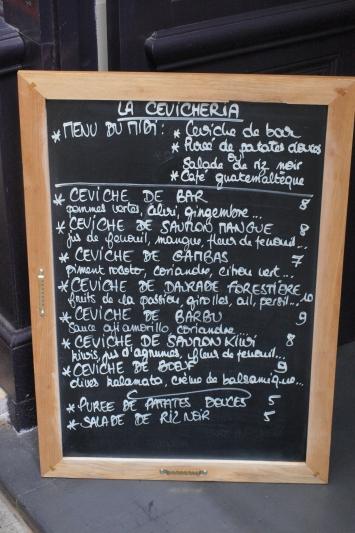 LA CEVICHERIA
* MENU DU MIDI : * Ceviche de bar
* Purée de patates douces
ou
Salade de riz noir
* Café guatemaltèque
* CEVICHE DE BAR 8
pommes vertes, céleri, gingembre...
* CEVICHE DE SAUMON MANGUE 8
jus de fenouil, mangue, fleur de fenouil...
* CEVICHE DE GAMBAS 7
piment rocoto, coriandre, citron vert...
* CEVICHE DE DAURADE FORESTIÈRE
fruits de la passion, girolles, ail, persil... 10
* CEVICHE DE BARBU 9
sauce aji amarillo, coriandre
* CEVICHE DE SAUMON KIWI 8
kiwis, jus d'agrumes, fleur de fenouil...
* CEVICHE DE BOEUF 9
olives kalamata, crème de balsamique...
* PUREE DE PATATES DOUCES 5
* SALADE DE RIZ NOIR 5